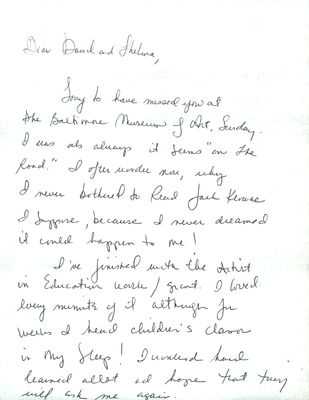 Dear David and Thelma,
Sorry to have missed you at
the Baltimore Museum of Art, Sunday.
I was as always it seems "on the
Road." I often wonder now, why
I never bothered to Read Jack Kerouac
I suppose, because I never dreamed
it could happen to me!
I've finished with the Artist
in Education work/grant. I loved
every minute of it although for
weeks I heard children's clamor
in my sleep! I worked hard
learned allot ad hope that they
will ask me again.